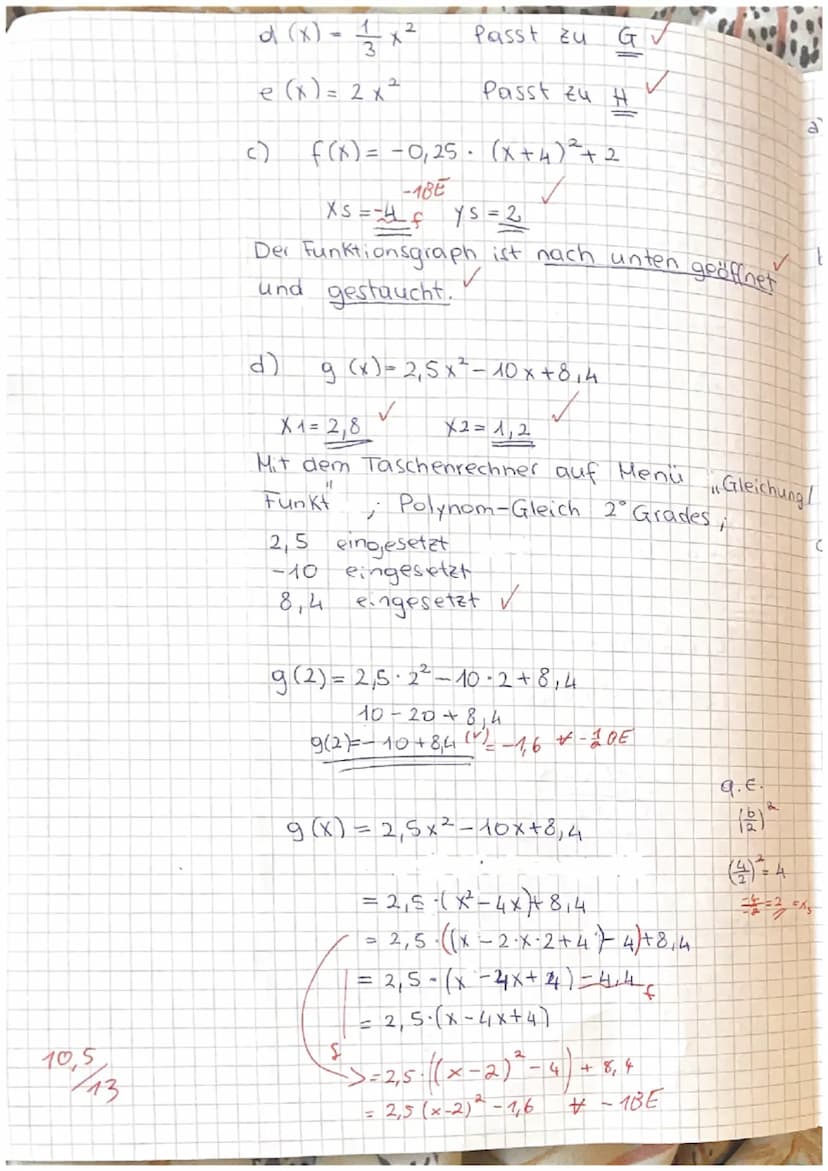 d(x) = 1/3 x² Passt zu G ✓
e(x) = 2x² Passt zu H ✓
c) f(x) = -0,25 · (x+4)² + 2
-1BE ✓
xs = -4 f ys = 2
Der Funktionsgraph ist nach unten geöffnet ✓
und gestaucht. ✓
d) g(x) = 2,5x² - 10x + 8,4
x1 = 2,8 ✓ x2 = 1,2 ✓
Mit dem Taschenrechner auf Menü „Gleichung/
Funkt" ; Polynom-Gleich 2° Grades ;
2,5 eingesetzt
-10 eingesetzt
8,4 eingesetzt ✓
g(2) = 2,5 · 2² - 10 · 2 + 8,4
10 - 20 + 8,4
g(2) = -10 + 8,4 (✓) = -1,6 ∀ -1/2 BE
q.E.
g(x) = 2,5x² - 10x + 8,4 (b/2)²
(4/2)² = 4
= 2,5 · (x² - 4x) + 8,4 -4/-2 = 2 = xs
= 2,5 · ((x - 2·x·2 + 4) - 4) + 8,4
= 2,5 · (x - 4x + 4) - 4,4 f
= 2,5 · (x - 4x + 4)
f
= 2,5 · ((x-2)² - 4) + 8,4
10,5/13
= 2,5 (x-2)² - 1,6 ∀ -1BE